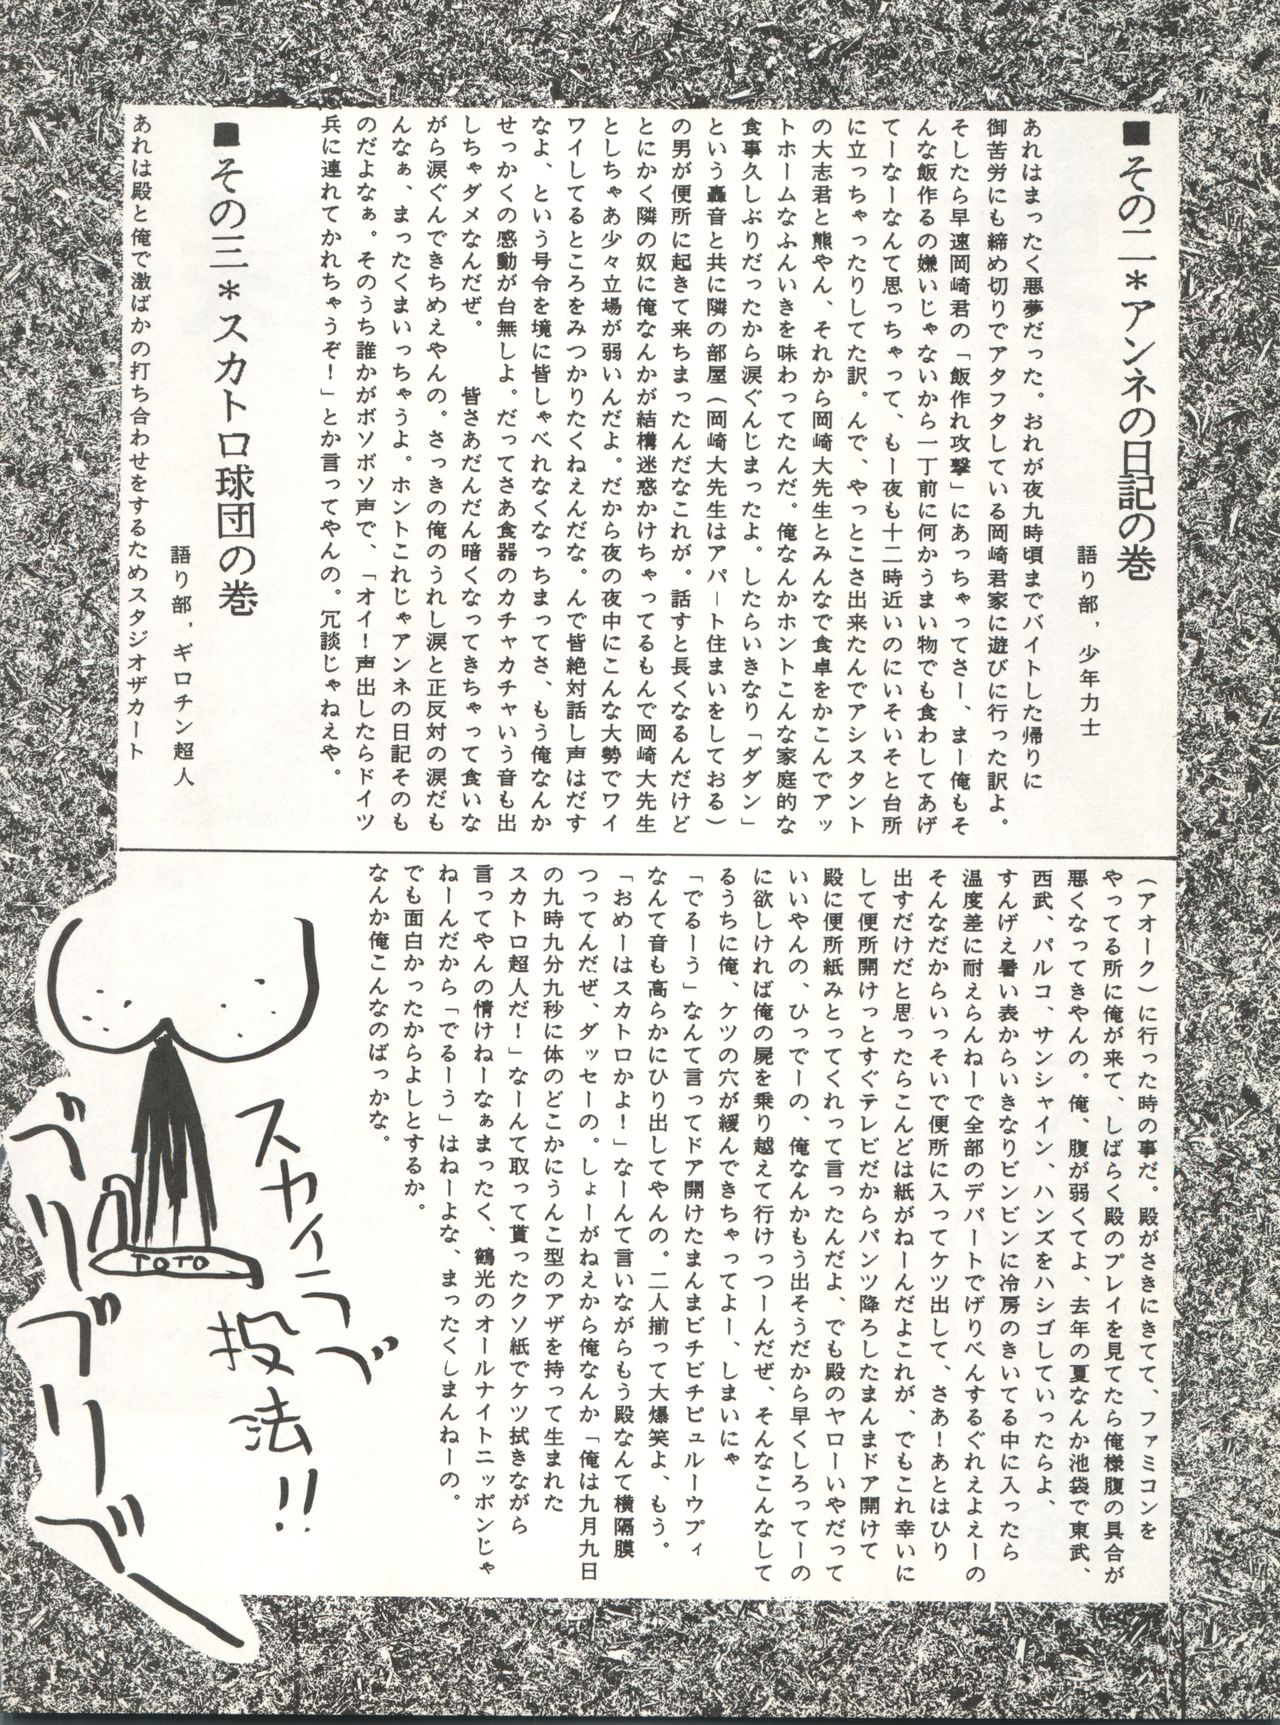 ■その二＊アンネの日記の巻
語り部，少年力士
あれはまったく悪夢だった。おれが夜九時頃までバイトした帰りに
御苦労にも締め切りでアタフタしている岡崎君家に遊びに行った訳よ。
そしたら早速岡崎君の「飯作れ攻撃」にあっちゃってさー、まー俺もそ
んな飯作るの嫌いじゃないから一丁前に何かうまい物でも食わしてあげ
てーなーなんて思っちゃって、もー夜も十二時近いのにいそいそと台所
に立っちゃったりしてた訳。んで、やっとこさ出来たんでアシスタント
の大志君と熊やん、それから岡崎大先生とみんなで食卓をかこんでアッ
トホームなふんいきを味わってたんだ。俺なんかホントこんな家庭的な
食事久しぶりだったから涙ぐんじまったよ。したらいきなり「ダダン」
という轟音と共に隣の部屋（岡崎大先生はアパート住まいをしておる）
の男が便所に起きて来ちまったんだなこれが。話すと長くなるんだけど
とにかく隣の奴に俺なんかが結構迷惑かけちゃってるもんで岡崎大先生
としちゃあ少々立場が弱いんだよ。だから夜の夜中にこんな大勢でワイ
ワイしてるところをみつかりたくねえんだな。んで皆絶対話し声はだす
なよ、という号令を境に皆しゃべれなくなっちまってさ、もう俺なんか
せっかくの感動が台無しよ。だってさあ食器のカチャカチャいう音も出
しちゃダメなんだぜ。　皆さあだんだん暗くなってきちゃって食いな
がら涙ぐんできちめえやんの。さっきの俺のうれし涙と正反対の涙だも
んなぁ、まったくまいっちゃうよ。ホントこれじゃアンネの日記そのも
のだよなぁ。そのうち誰かがボソボソ声で、「オイ！声出したらドイツ
兵に連れてかれちゃうぞ！」とか言ってやんの。冗談じゃねえや。
■その三＊スカトロ球団の巻
語り部，ギロチン超人
あれは殿と俺で激ばかの打ち合わせをするためスタジオザカート
（アオーク）に行った時の事だ。殿がさきにきてて、ファミコンを
やってる所に俺が来て、しばらく殿のプレイを見てたら俺様腹の具合が
悪くなってきやんの。俺、腹が弱くてよ、去年の夏なんか池袋で東武、
西武、パルコ、サンシャイン、ハンズをハシゴしていったらよ、
すんげえ暑い表からいきなりビンビンに冷房のきいてる中に入ったら
温度差に耐えらんねーで全部のデパートでげりべんするぐれえよえーの
そんなだからいっそいで便所に入ってケツ出して、さあ！あとはひり
出すだけだと思ったらこんどは紙がねーんだよこれが、でもこれ幸いに
して便所開けっとすぐテレビだからパンツ降ろしたまんまドア開けて
殿に便所紙みとってくれって言ったんだよ、でも殿のヤローいやだって
いいやんの、ひっでーの、俺なんかもう出そうだから早くしろってーの
に欲しければ俺の屍を乗り越えて行けっつーんだぜ、そんなこんなして
るうちに俺、ケツの穴が緩んできちゃってよー、しまいにゃ
「でるーう」なんて言ってドア開けたまんまビチビチピュルーウプィ
なんて音も高らかにひり出してやんの。二人揃って大爆笑よ、もう。
「おめーはスカトロかよ！」なーんて言いながらもう殿なんて横隔膜
つってんだぜ、ダッセーの。しょーがねえから俺なんか「俺は九月九日
の九時九分九秒に体のどこかにうんこ型のアザを持って生まれた
スカトロ超人だ！」なーんて取って貰ったクソ紙でケツ拭きながら
言ってやんの情けねーなぁまったく、鶴光のオールナイトニッポンじゃ
ねーんだから「でるーう」はねーよな、まったくしまんねーの。
でも面白かったからよしとするか。
なんか俺こんなのばっかな。
スカイラブ
投法!!
TOTO
ベリブリブ